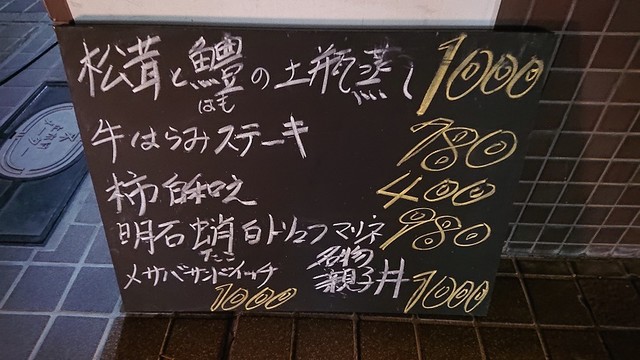 松茸と鱧の土瓶蒸し 1000
はも
牛はらみステーキ 780
柿白和え 400
明石蛸白トリュフマリネ 980
たこ
メサバサンドイッチ 1000
名物
親子丼 1000